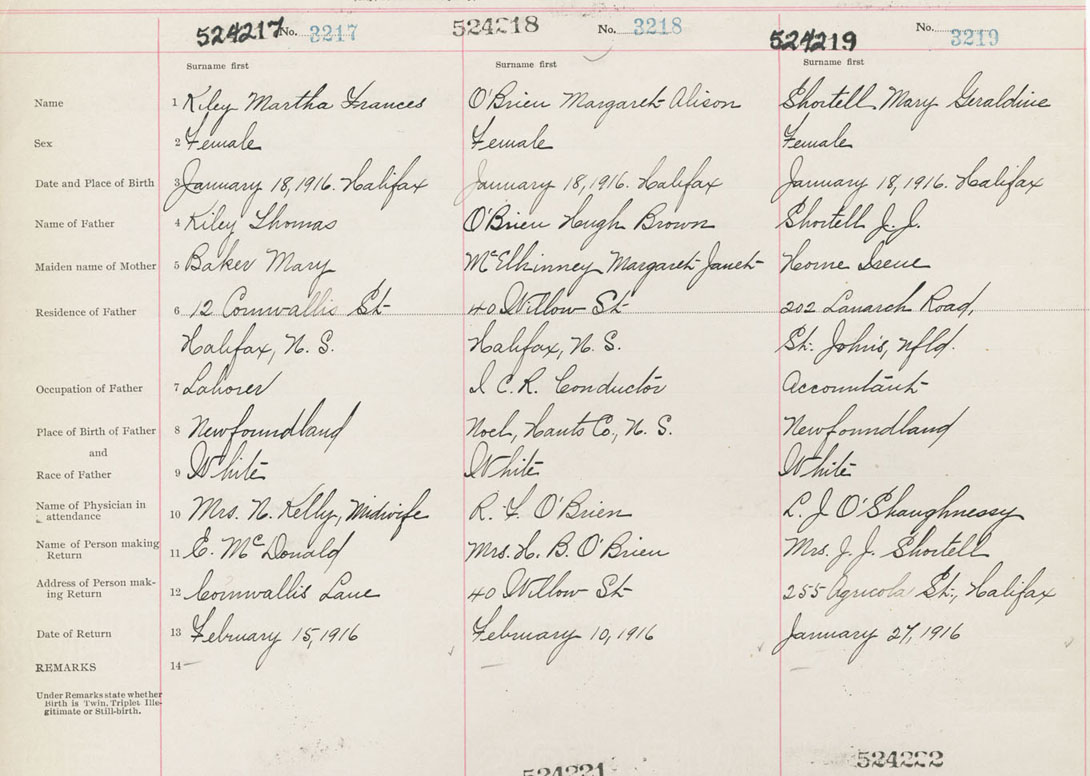 524217 No. 3217 524218 No. 3218 524219 No. 3219
Surname first Surname first Surname first
Name 1 Kiley Martha Frances O'Brien Margaret Alison Shortell Mary Geraldine
Sex 2 Female Female Female
Date and Place of Birth 3 January 18, 1916. Halifax January 18, 1916. Halifax January 18, 1916. Halifax
Name of Father 4 Kiley Thomas O'Brien Hugh Brown Shortell J. J.
Maiden name of Mother 5 Baker Mary McElhinney Margaret Janet Horne Irene
Residence of Father 6 12 Cornwallis St 40 Willow St 202 Lanarch Road,
Halifax, N. S. Halifax, N. S. St. John's, Nfld.
Occupation of Father 7 Laborer I C. R. Conductor Accountant
Place of Birth of Father 8 Newfoundland Noel, Hants Co., N. S. Newfoundland
and
Race of Father 9 White White White
Name of Physician in attendance 10 Mrs. N. Kelly, Midwife R. F. O'Brien L. J O'Shaughnessy
Name of Person making Return 11 E. McDonald Mrs. H. B. O'Brien Mrs. J. J. Shortell
Address of Person mak-
ing Return 12 Cornwallis Lane 40 Willow St 255 Agricola St., Halifax
Date of Return 13 February 15, 1916 February 10, 1916 January 27, 1916
REMARKS 14 —
Under Remarks state whether
Birth is Twin, Triplet Ille-
gitimate or Still-birth.
524221 524222